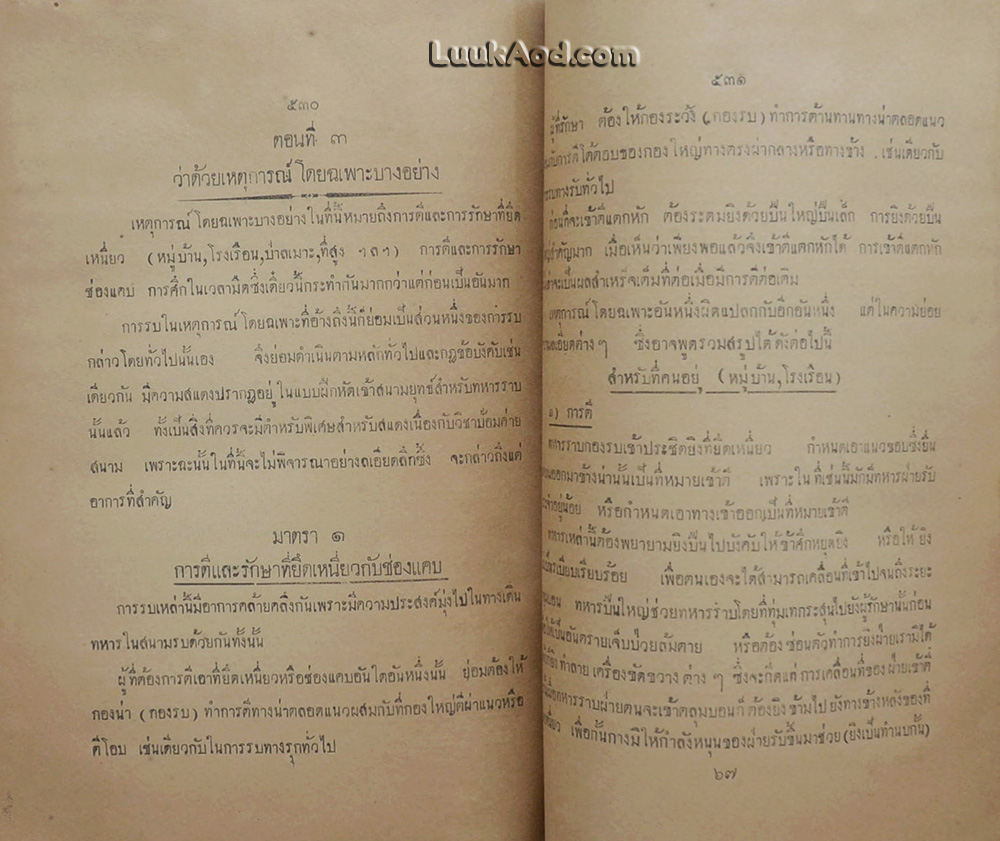 LuukAod.com
๕๓๐
ตอนที่ ๓
ว่าด้วยเหตุการณ์ โดยฉเพาะบางอย่าง
เหตุการณ์ โดยฉเพาะบางอย่างในที่นี้หมายถึงการตีและการรักษาที่ยึด
เหนี่ยว (หมู่บ้าน,โรงเรือน,ป่าลเมาะ,ที่สูง ฯลฯ) การตีและการรักษา
ช่องแคบ การศึกในเวลามืดซึ่งเดี๋ยวนี้กระทำกันมากกว่าแต่ก่อนเป็นอันมาก
การรบในเหตุการณ์ โดยฉเพาะที่อ้างถึงนี้ก็ย่อมเป็นส่วนหนึ่งของการรบ
กล่าวโดยทั่วไปนั้นเอง จึงย่อมดำเนินตามหลักทั่วไปและกฎข้อบังคับเช่น
เดียวกัน มีความสแดงปรากฏอยู่ในแบบฝึกหัดเข้าสนามยุทธ์สำหรับทหารราบ
นั้นแล้ว ทั้งเป็นสิ่งที่ควรจะมีตำหรับพิเศษสำหรับสแดงเนื่องกับวิชาป้อมค่าย
สนาม เพราะฉะนั้นในที่นี้จะไม่พิจารณาอย่างลเอียดลึกซึ้ง จะกล่าวถึงแต่
อาการที่สำคัญ
มาตรา ๑
การตีและรักษาที่ยึดเหนี่ยวกับช่องแคบ
การรบเหล่านี้มีอาการคล้ายคลึงกันเพราะมีความประสงค์มุ่งไปในทางเดิน
ทหารในสนามรบด้วยกันทั้งนั้น
ผู้ที่ต้องการตีเอาที่ยึดเหนี่ยวหรือช่องแคบอันใดอันหนึ่งนั้น ย่อมต้องให้
กองน่า (กองรบ) ทำการตีทางน่าตลอดแนวผสมกับที่กองใหญ่ตีฝ่าแนวหรือ
ตีโอบ เช่นเดียวกับในการรบทางรุกทั่วไป
๕๓๑
ผู้ที่รักษา ต้องให้กองระวัง (กองรบ) ทำการต้านทานทางน่าตลอดแนว
การตีโต้ตอบของกองใหญ่ทางตรงฝ่ากลางหรือทางข้าง เช่นเดียวกับ
รบทางรับทั่วไป
ก่อนที่จะเข้าตีแตกหัก ต้องระดมยิงด้วยปืนใหญ่ปืนเล็ก การยิงด้วยปืน
สำคัญมาก เมื่อเห็นว่าเพียงพอแล้วจึงเข้าตีแตกหักได้ การเข้าตีแตกหัก
จะเป็นผลสำเหร็จเต็มที่ต่อเมื่อมีการตีต่อเติม
เหตุการณ์โดยฉเพาะอันหนึ่งผิดแปลกกับอีกอันหนึ่ง แต่ในความย่อย
ลเอียดต่างๆ ซึ่งอาจพูดรวมสรุปได้ดังต่อไปนี้
สำหรับที่คนอยู่ (หมู่บ้าน,โรงเรือน)
๑) การตี
ทหารราบกองรบเข้าประชิดยิงที่ยึดเหนี่ยว กำหนดเอาแนวขอบซึ่งยื่น
ออกมาข้างน่านั้นเป็นที่หมายเข้าตี เพราะในที่เช่นนี้มักมีทหารฝ่ายรับ
อยู่น้อย หรือกำหนดเอาทางเข้าออกเป็นที่หมายเข้าตี
ทหารเหล่านี้ต้องพยายามยิงปืนไปบังคับให้ข้าศึกหยุดยิง หรือให้ยิง
เรียบร้อย เพื่อตนเองจะได้สามารถเคลื่อนที่เข้าไปจนถึงระยะ
ทหารปืนใหญ่ช่วยทหารราบโดยที่ทุ่มเทกระสุนไปยังผู้รักษานั้นก่อน
เป็นอันตรายเจ็บป่วยล้มตาย หรือต้องซ่อนตัวทำการยิงฝ่ายเรามิได้
ทำลายเครื่องขัดขวางต่างๆ ซึ่งจะกีดแก่การเคลื่อนที่ของฝ่ายเข้าตี
ทหารราบฝ่ายตนจะเข้าตลุมบอนก็ต้องยิงข้ามไปยังทางข้างหลังของที่
เพื่อกั้นกางมิให้กำลังหนุนของฝ่ายรับขึ้นมาช่วย(ยิงเป็นทำนบกั้น)
๖๗